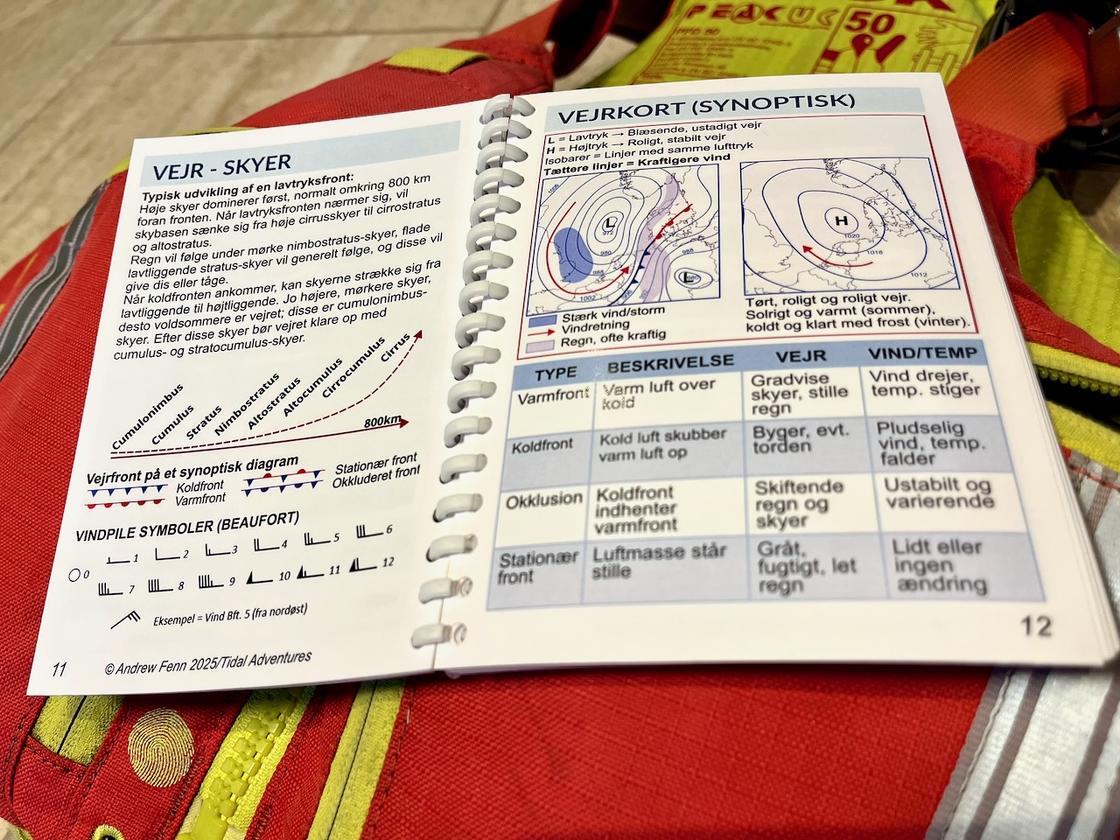 PEAK UK
50
PFD 50
VEJR - SKYER
Typisk udvikling af en lavtryksfront:
Høje skyer dominerer først, normalt omkring 800 km
foran fronten. Når lavtryksfronten nærmer sig, vil
skybasen sænke sig fra høje cirrusskyer til cirrostratus
og altostratus.
Regn vil følge under mørke nimbostratus-skyer, flade
lavtliggende stratus-skyer vil generelt følge, og disse vil
give dis eller tåge.
Når koldfronten ankommer, kan skyerne strække sig fra
lavtliggende til højtliggende. Jo højere, mørkere skyer,
desto voldsommere er vejret; disse er cumulonimbus-
skyer. Efter disse skyer bør vejret klare op med
cumulus- og stratocumulus-skyer.
Cumulonimbus
Cumulus
Stratus
Nimbostratus
Altostratus
Altocumulus
Cirrocumulus
Cirrus
800km
Vejrfront på et synoptisk diagram
Koldfront
Varmfront
Stationær front
Okkluderet front
VINDPILE SYMBOLER (BEAUFORT)
0 1 2 3 4 5 6
7 8 9 10 11 12
Eksempel = Vind Bft. 5 (fra nordøst)
11
© Andrew Fenn 2025/Tidal Adventures
VEJRKORT (SYNOPTISK)
L = Lavtryk → Blæsende, ustadigt vejr
H = Højtryk → Roligt, stabilt vejr
Isobarer = Linjer med samme lufttryk
Tættere linjer = Kraftigere vind
L
972
980
988
1002
L
H
1020
1016
1012
Stærk vind/storm
Vindretning
Regn, ofte kraftig
Tørt, roligt og roligt vejr.
Solrigt og varmt (sommer),
koldt og klart med frost (vinter).
TYPE BESKRIVELSE VEJR VIND/TEMP
Varmfront
Varm luft over
kold
Gradvise
skyer, stille
regn
Vind drejer,
temp. stiger
Koldfront
Kold luft skubber
varm luft op
Byger, evt.
torden
Pludselig
vind, temp.
falder
Okklusion
Koldfront
indhenter
varmfront
Skiftende
regn og
skyer
Ustabilt og
varierende
Stationær
front
Luftmasse står
stille
Gråt,
fugtigt, let
regn
Lidt eller
ingen
ændring
12